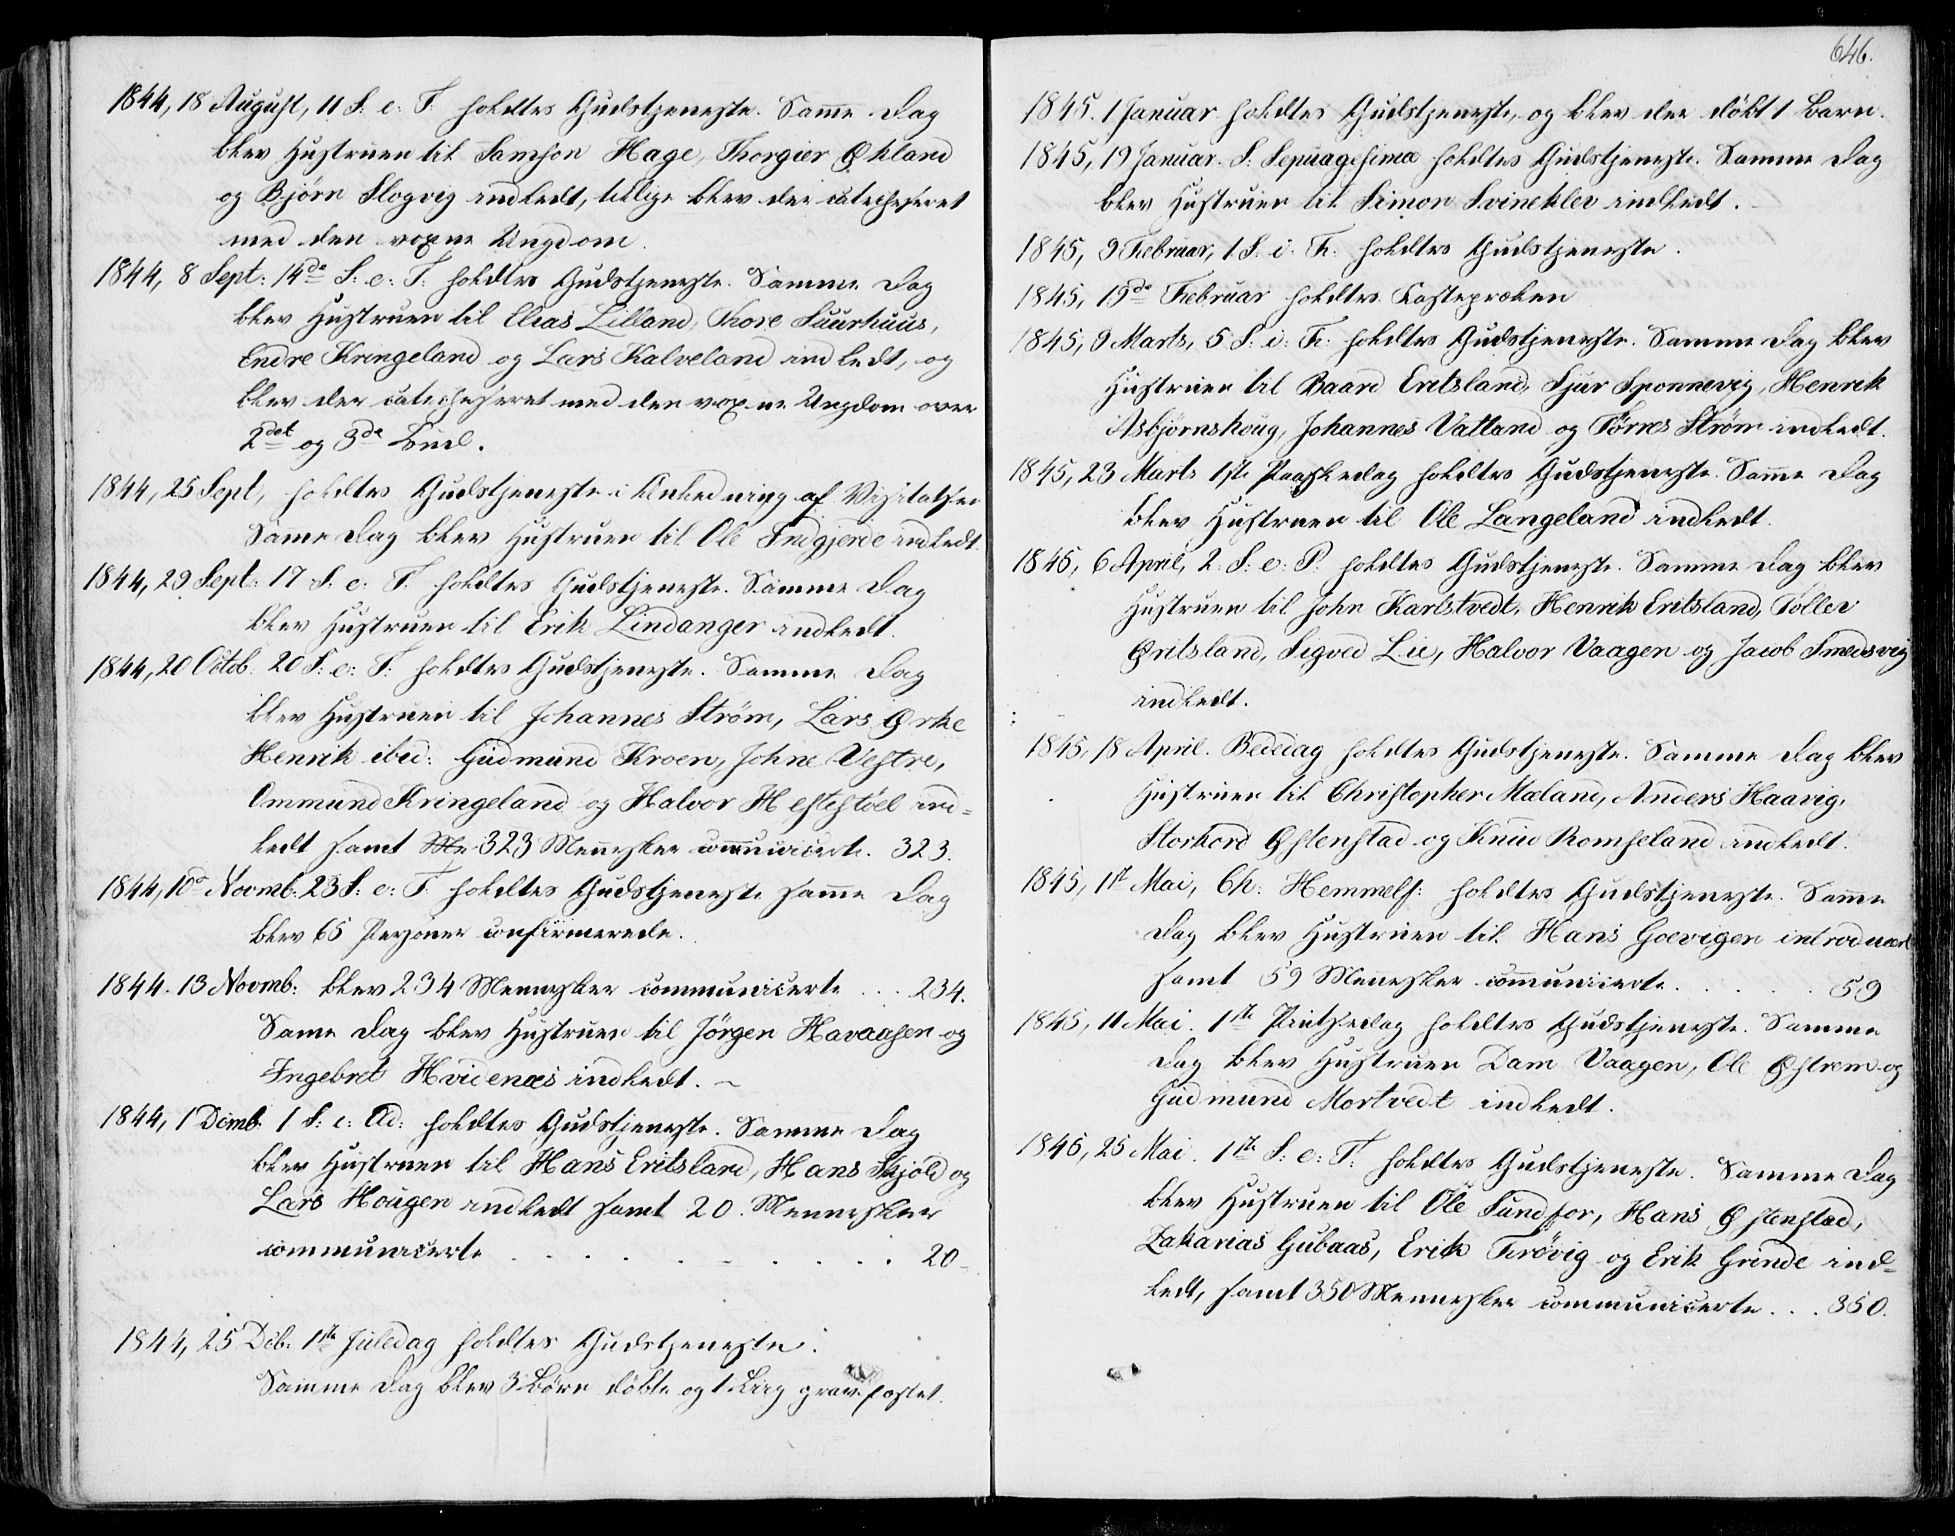 1844, 18 August, 11 S: e: T: holdtes Gudstjeneste. Same Dag
blev Hustruen til Samson Hage, Thorgier Økland
og Bjørn Slogvig indledt, tillige blev der catechiseret
med den voxne Ungdom.
1844, 8 Sept: 14de S: e: T: holdtes Gudstjeneste. Samme Dag
blev Hustruen til Elias Lilland, Thore Suurhuus,
Endre Kringeland og Lars Kalveland indledt, og
blev der catechiseret med den voxne Ungdom over
2det og 3de Bud.
1844, 25 Sept, holdtes Gudstjeneste i Anledning af Visitatsen
Same Dag blev Hustruen til Ole Indgjerde indledt.
1844, 29 Sept: 17 S: e: T: holdtes Gudstjeneste. Samme Dag
blev Hustruen til Erik Lindanger indledt.
1844, 20 Octob: 20 S: e: T: holdtes Gudstjeneste. Samme Dag
blev Hustruen til Johannes Strøm, Lars Ørke
Henrik ibid: Gudmund Kroen, Johne Vestre,
Ommund Kringeland og Halvor Hestestöel ind=
ledt samt 323 Mennesker communicerte. 323.
1844, 10de Novmb: 23 S: e: T: holdtes Gudstjeneste same Dag
blev 65 Personer confirmerede.
1844. 13 Novmb: blev 234 Mennesker communicerte . . . 234.
Same Dag blev Hustruen til Jörgen Havaasen og
Ingebret Hvidenæs indledt. –
1844, 1 Decmb. 1 S: e: Ad: holdtes Gudstjeneste. Samme Dag
blev Hustruen til Hans Eritsland, Hans Skjold og
Lars Hougen indledt samt 20. Mennesker
communicerte . . . . . . . . . 20-
1844, 25 Dcb. 1ste Juledag holdtes Gudstjeneste.
Samme Dag blev 3 Börn döbte og 1 Liig grav-fæstet.
646.
1845. 1 Januar holdtes Gudstjeneste, og blev der döbt 1 Barn.
1845, 19 Januar. S: Sepuagesima holdtes Gudstjeneste. Samme Dag
blev Hustruen til Simon Svineklev indledt.
1845, 9 Februar, 1 S: i: F: holdtes Gudstjeneste.
1845, 19de Februar holdtes Fastepræken
1845, 9 Marts, 5 S: i: F: holdtes Gudstjeneste. Samme Dag blev
Hustruen til Baard Eritsland, Sjur Sponnevig, Henrik
Asbjörnshoug, Johannes Vatland og Törres Ström indledt.
1845, 23 Marts 1ste Paaskedag holdtes Gudstjeneste. Same Dag
blev Hustruen til Ole Langeland indledt.
1845, 6 April, 2. S: e: P. holdtes Gudstjeneste. Samme Dag blev
Hustruen til John Karlstvedt, Henrik Eritsland, Tollev
Øritsland, Sigved Lie, Halvor Vaagen og Jacob Smedsvig
indledt.
1845, 18 April. Bededag holdtes Gudstjeneste. Samme Dag blev
Hustruen til Christopher Mæland, Anders Haavig,
Storkord Østenstad og Knud Romseland indledt.
1845, 1st Mai, Ch: Hemmelf: holdtes Gudstjeneste. Same
Dag blev Hustruen til Hans Goevigen introduceret
samt 59 Mennesker communicerte . . . . . 59
1845, 11 Mai. 1ste Pintsedag holdtes Gudstjeneste. Samme
Dag blev Hustruen Dam Vaagen, Ole Østrem og
Gudmund Mortvedt indledt.
1845, 25 Mai. 1ste S: e: T: holdtes Gudstjeneste. Samme Dag
blev Hustruen til Ole Sundfor, Hans Østenstad,
Zakarias Gubaas, Erik Frövig og Erik Grinde ind=
ledt, samt 350 Mennesker communicerte . . . 350.